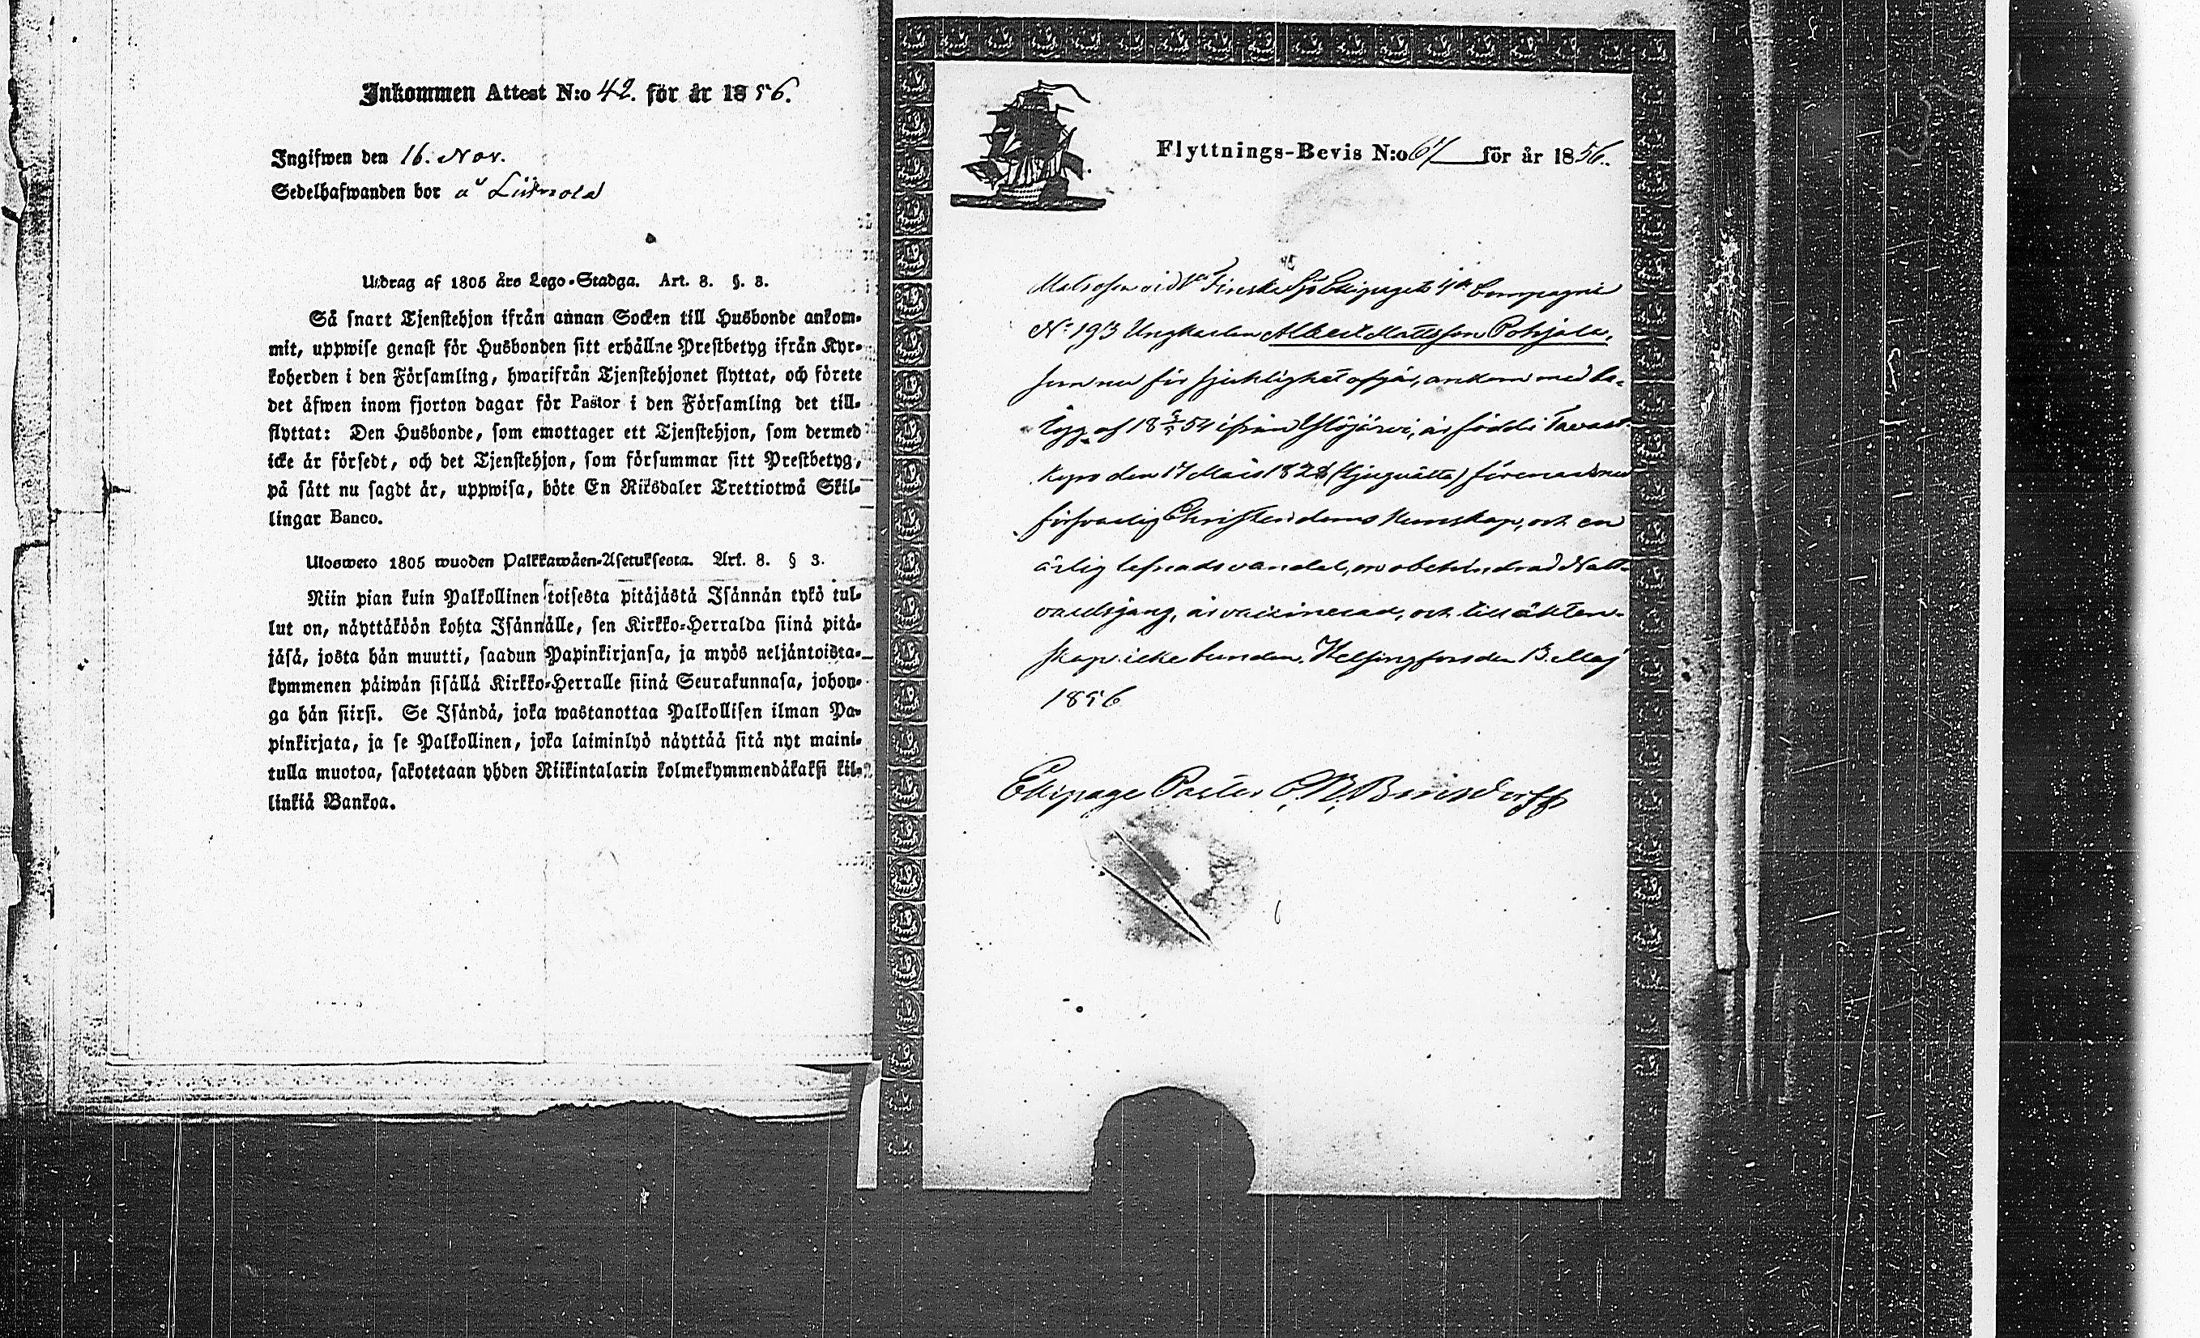 Inkommen Attest N:o 42. för år 1856.
Ingifwen den 16. Nov.
Sedelhafwanden bor å
Utdrag af 1805 års Lego-Stadga. Art. 8. §. 3.
Så snart Tjenstehjon ifrån annan Socken till Husbonde ankom-
mit, uppwise genast för Husbonden sitt erhållne Prestbetyg ifrån Kyr-
koherden i den Församling, hwarifrån Tjenstehjonet flyttat, och förete
det äfwen inom fjorton dagar för Pastor i den Församling det till-
flyttat: Den Husbonde, som emottager ett Tjenstehjon, som dermed
icke är försedt, och det Tjenstehjon, som försummar sitt Prestbetyg,
på sätt nu sagdt är, uppwisa, böte En Riksdaler Trettiotwå Skil-
lingar Banco.
Ulosweto 1805 wuoden Palkkawäen-Asetuksesta. Art. 8. § 3.
Niin pian kuin Palkollinen toisesta pitäjästä Isännän tykö tul-
lut on, näyttäköön kohta Isännälle, sen Kirkko-Herralda siinä pitä-
jäsä, josta hän muutti, saadun Papinkirjansa, ja myös neljäntoista-
kymmenen päiwän sisällä Kirkko-Herralle siinä Seurakunnasa, johon-
ga hän siirsi. Se Isändä, joka wastanottaa Palkollisen ilman Pa-
pinkirjata, ja se Palkollinen, joka laiminlyö näyttää sitä nyt maini-
tulla muotoa, sakotetaan yhden Riikintalarin kolmekymmendäkaksi kil-
linkiä Bankoa.
Flyttnings-Bevis N:o 67 för år 1856.
Matrosen vid 1a Finske Sjö Ekipagets 4de Compagnie
No 193 Ungkarlen Albert Mattsson Pohjala,
som nu för sjuklighet afgår, ankom med be-
tyg af 18 54 ifrån Ylöjärvi, är född i Tavast-
kyro den 17 Mars 1828 (tjuguåtta) förenad med
försvarlig Christendoms kunskap, och en
ärlig lefnads vandel, en obehindrad Natt-
vardsgång, är vaccinerad, och till äkten-
skap icke bunden. Helsingfors den 13 Maj
1856
Ekipage Pastor